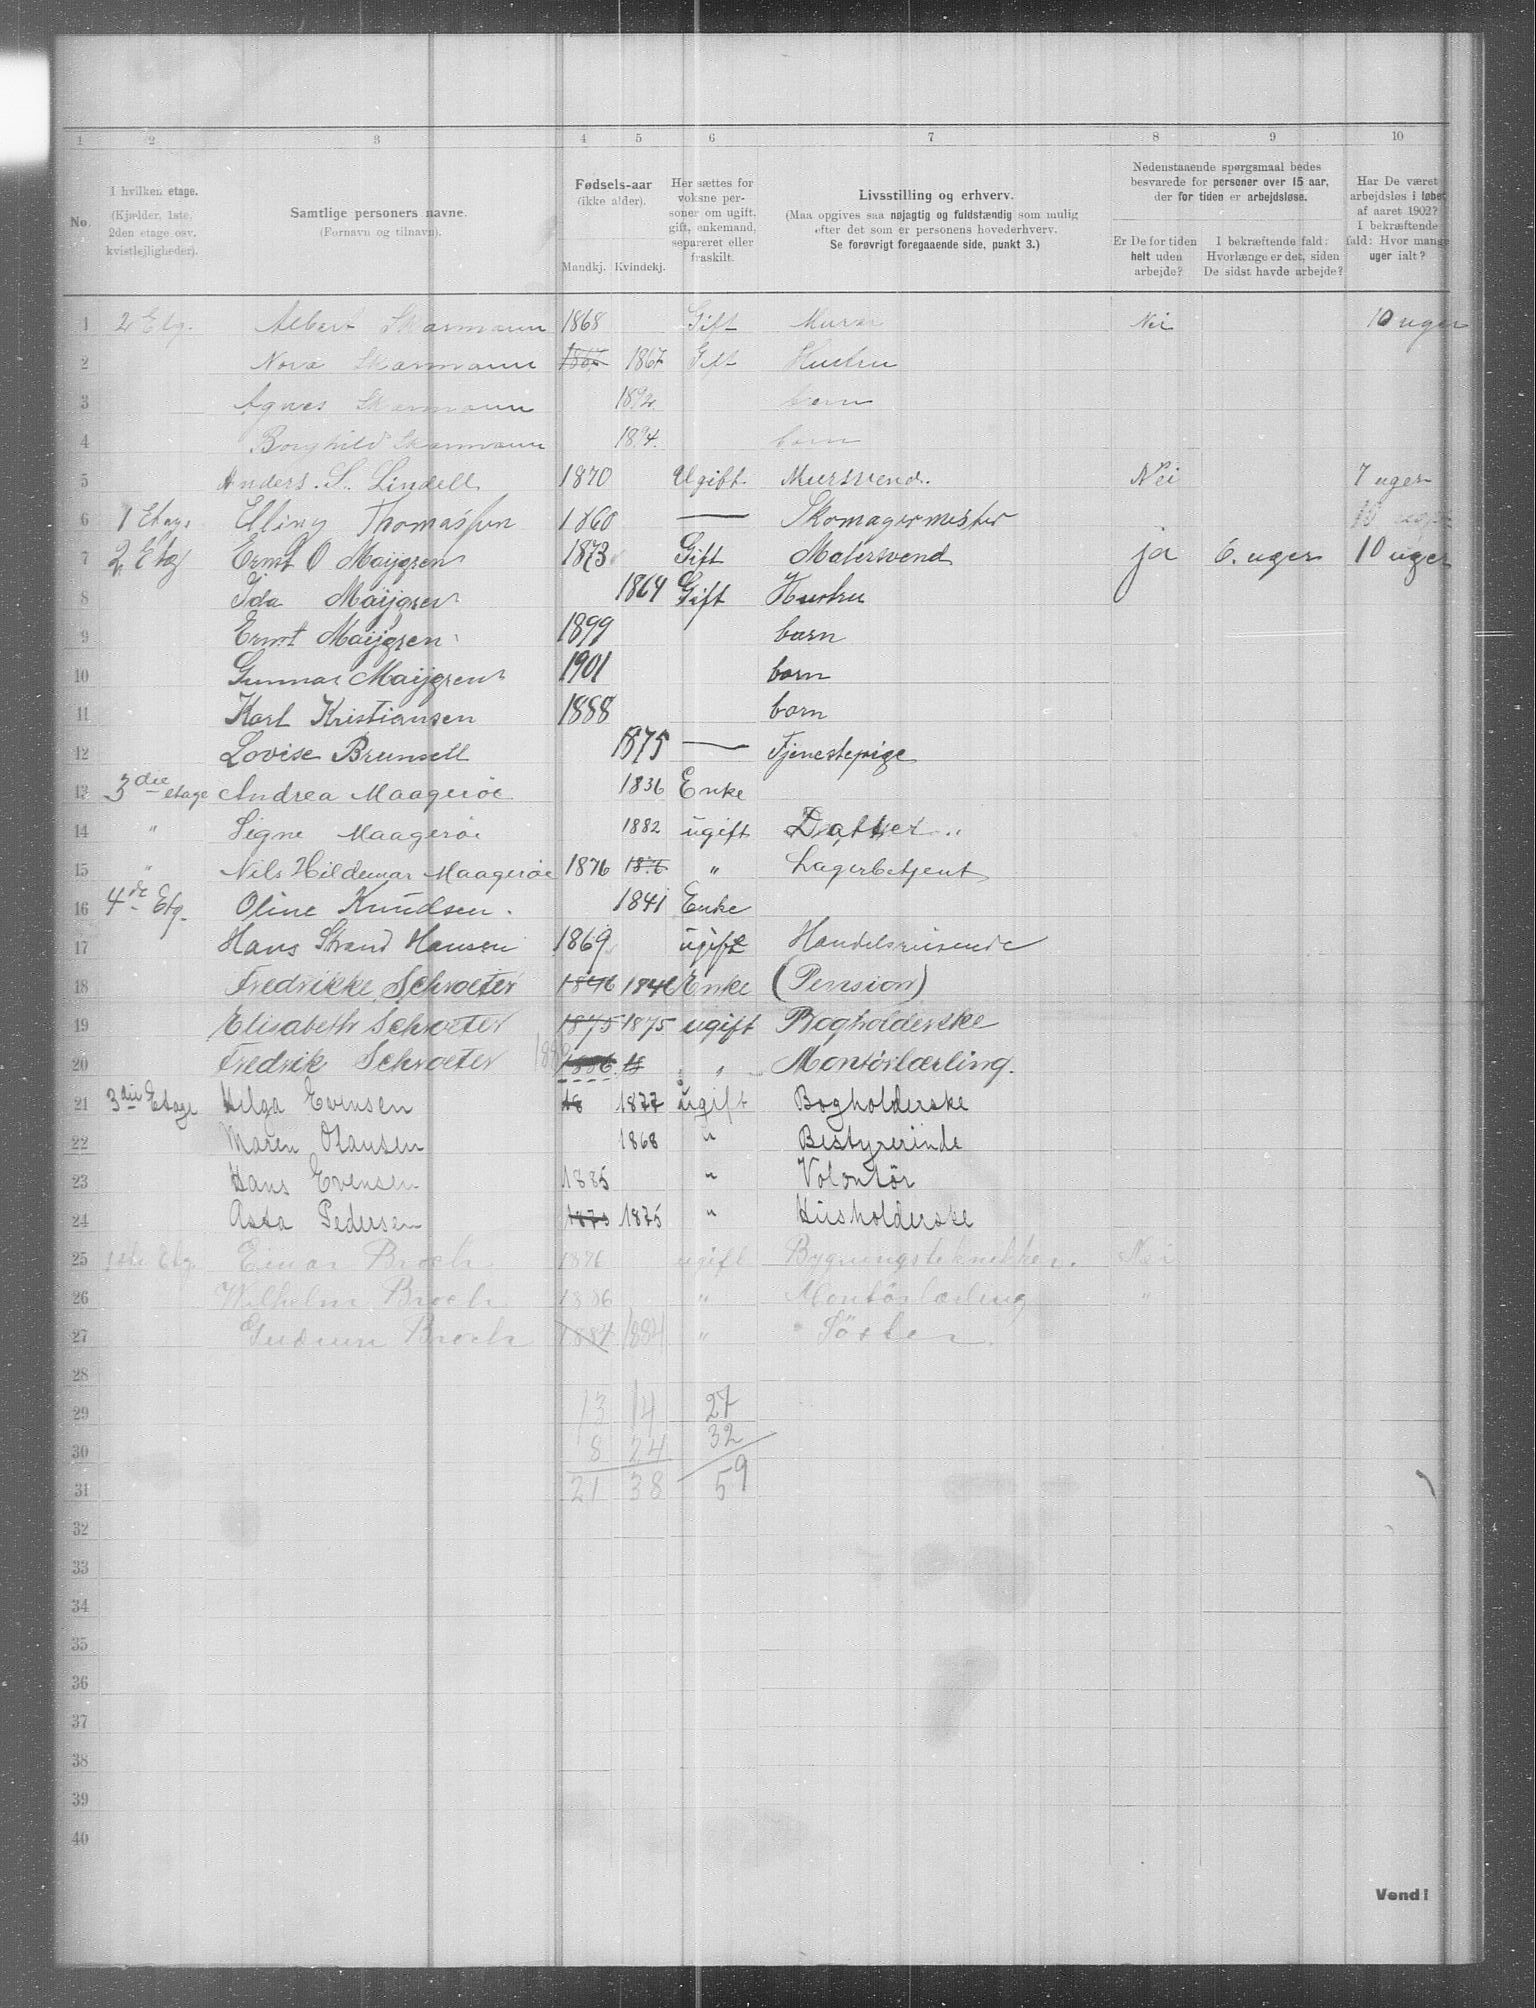 1 2 3 4 5 6 7 8 9 10
No.
I hvilken etage. (Kjælder, 1ste, 2den etage osv. kvistlejligheder).
Samtlige personers navne. (Fornavn og tilnavn).
Fødsels-aar (ikke alder). Mandkj. Kvindekj.
Her sættes for voksne personer om ugift, gift, enkemand, separeret eller fraskilt.
Livsstilling og erhverv. (Maa opgives saa nøjagtig og fuldstændig som mulig efter det som er personens hovederhverv. Se forøvrigt foregaaende side, punkt 3.)
Nedenstaaende spørgsmaal bedes besvarede for personer over 15 aar, der for tiden er arbejdsløse.
Er De for tiden helt uden arbejde?
I bekræftende fald: Hvorlænge er det, siden De sidst havde arbejde?
Har De været arbejdsløs i løbet af aaret 1902? I bekræftende fald: Hvor mange uger ialt?
1 2 Etg. Albert Skarmann 1868 Gift Murer Nei 10 uger
2 Nora Skarmann 1867 1867 Gift Hustru
3 Agnes Skarmann 1892 barn
4 Borghild Skarmann 1894. barn
5 Anders. S. Lindell 1870 Ugift Mursvend. Nei 7 uger
6 1 Etag. Elling Thomassen 1860 — Skomagermester 10 uger
7 2 Etag Ernst O Maijgren 1873 Gift Malersvend ja 6. uger 10 uger
8 Ida Maijgren 1864 Gift Hustru
9 Ernst Maijgren 1899 barn
10 Gunnar Maijgren 1901 barn
11 Karl Kristiansen 1888 barn
12 Lovise Brunsell 1875 — Tjenestepige
13 3die etage Andrea Maagerøe 1836 Enke
14 " Signe Maagerøe 1882 ugift Datter "
15 " Nils Hildemar Maagerøe 1876 1876 " Lagerbetjent
16 4de Etg. Oline Knudsen. 1841 Enke
17 Hans Strand Hansen 1869 ugift Handelsreisende
18 Fredrikke Schroeter 1846 1846 Enke (Pension)
19 Elisabeth Schroeter 1875 1875 ugift Bogholderske
20 Fredrik Schroeter 1886 18 " " Montörlærling.
21 3die Etage Helga Evensen 18 1877 ugift Bogholderske
22 Maren Olausen 1868 " Bestyrerinde
23 Hans Evensen 1885 " Volontör
24 Asta Pedersen 1875 1875 " Husholderske
25 1ste Etg Einar Broch 1876 ugift Bygningstekniker. Nei
26 Wilhelm Broch 1886 " Montörlærling "
27 Gudrun Broch 1884 1884 " Söster.
28
29 13 14 27
30 8 24 32
31 21 38 59
32
33
34
35
36
37
38
39
40
Vend!